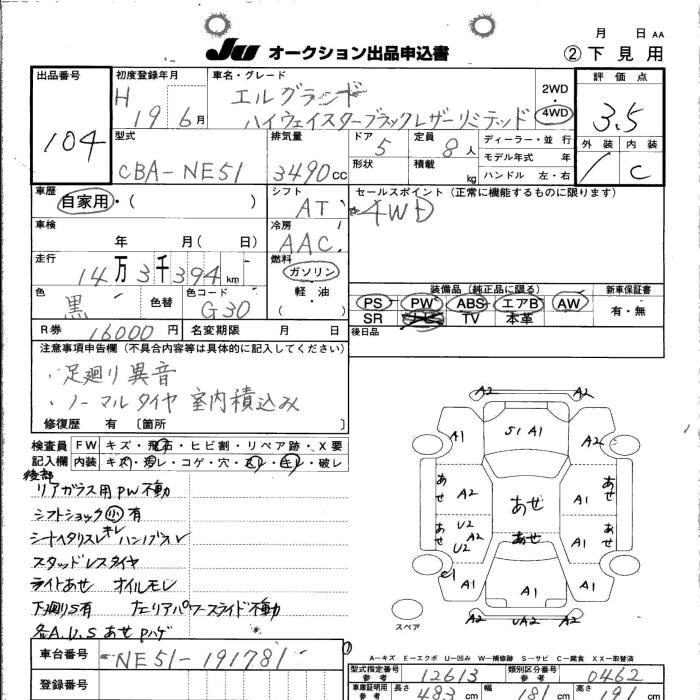 月 日 AA
JU オークション出品申込書
② 下見用
出品番号
104
初度登録年月
H 19 6月
車名・グレード
エルグランド
ハイウェイスターブラックレザーリミテッド
2WD
4WD
評価点
3.5
外装 内装
C
型式
CBA-NE51
排気量
3490cc
ドア
5
定員
8人
形状
積載
kg
ディーラー・並行
モデル年式 年
ハンドル 左・右
車歴
自家用・( )
シフト
AT
セールスポイント (正常に機能するものに限ります)
4WD
車検
年 月( 日)
冷房
AAC
走行
14万3千394km
燃料
ガソリン
軽・油
( )
色
黒
色替
色コード
G30
装備品 (純正品に限る)
PS PW ABS エアB AW
SR ナビ TV 本革
新車保証書
有・無
後日品
R券 16000円
名変期限 月 日
注意事項申告欄 (不具合内容等は具体的に記入してください)
・足廻り異音
・ノーマルタイヤ 室内積込み
修復歴 有 〔箇所
検査員 FW キズ・飛石・ヒビ割・リペア跡・X要
記入欄 内装 キズ・汚レ・コゲ・穴・スレ・キレ・破レ
後部
リアガラス用PW不動
シフトショック小有
シートヘタリスレキレ ハンドルスレ
スタッドレスタイヤ
ライトあせ オイルモレ
下廻りS有 左リアパワースライド不動
各A.U.S あせ Pハゲ
A2 A2
A1 S1 A1 A2
あせ A2 あせ A1 あせ
あせ U2 A2 U2 あせ A1 あせ
C1 A1 A1
A2 UA2 A2
スペア
A-キズ E-エクボ U-凹み W-補修跡 S-サビ C-腐食 XX-取替済
車台番号
NE51-191781
登録番号
型式指定番号
参考
12613
類別区分番号
参考
0462
車庫証明用
参考
長さ
483cm
幅
181cm
高さ
191